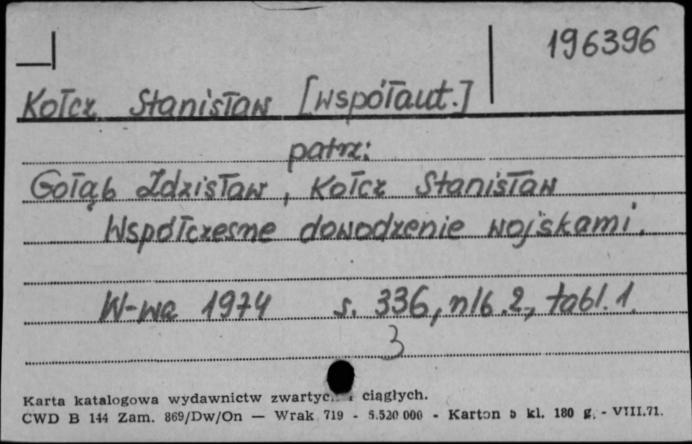 196396
Kołcz Stanisław [współaut.]
patrz:
Gołąb Zdzisław, Kołcz Stanisław
Współczesne dowodzenie wojskami.
W-wa 1974 s. 336, nlb. 2, tabl. 1.
3
Karta katalogowa wydawnictw ciągłych.
CWD B 144 Zam. 869/Dw/On — Wrak 719 - 5.520 000 - Karton kl. 180 g. - VIII.71.